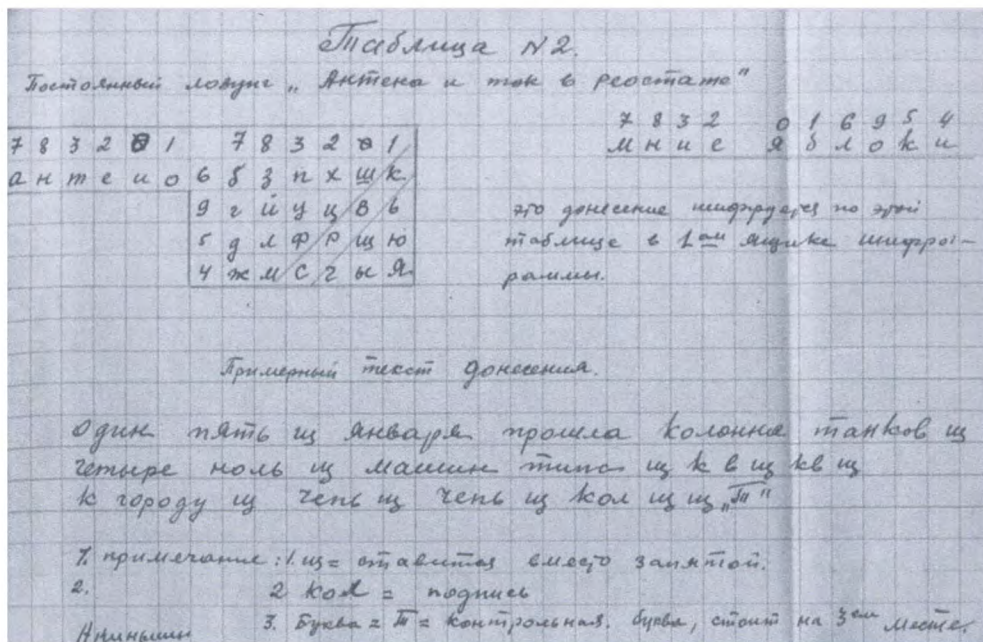 Таблица N2.
Постоянный лозунг „Антена и ток в реостате"
7 8 3 2 0 1 6 9 5 4
м н и е я б л о к и
7 8 3 2 0 1 7 8 3 2 0 1
а н т е и о 6 б з п х ш к
9 г й у ц в ь
5 д л ф р щ ю
4 ж м с ч ы я
это донесение шифруется по этой
таблице в 1ом ящике шифро-
граммы.
Примерный текст донесения.
один пять щ января прошла колонна танков щ
четыре ноль щ машин типа щ к в щ кв щ
к городу щ чепь щ чепь щ кол щ щ „Т"
1. примечание: 1. щ = ставится вместо запятой.
2. 2 кол = подпись
3. Буква = Т = контрольная. буква, стоит на 3ем месте.